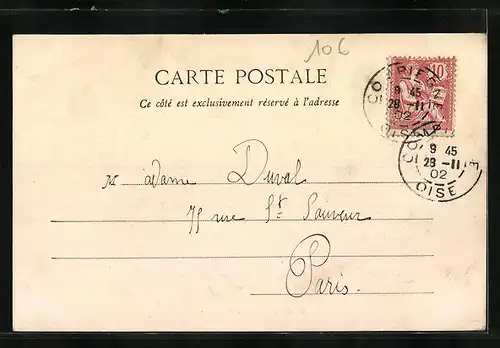 10 c
CARTE POSTALE
Ce côté est exclusivement réservé à l'adresse
10
COMPIEGNE
9 45
28 -11
02
OISE
9 45
28 -11
02
OISE
Madame Duval
rue St Sauveur
Paris.